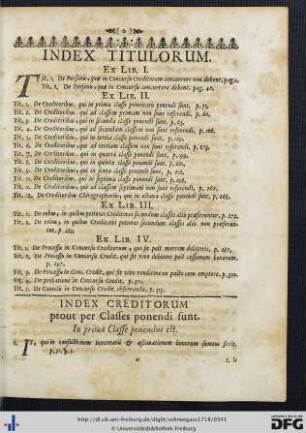 INDEX TITULORUM.
EX LIB. I.
TIT. 1. De Personis, quæ in Concursu Creditorum concurrere non debent, pag. 1.
TIT. 2. De Personis, quæ in Concursu concurrere debent. pag.
EX LIB. II.
TIT. 1. De Creditoribus, qui in prima classe prioritatis ponendi sunt, p.
TIT. 2. De Creditoribus, qui ad classem primam non sunt referendi, p.
TIT. 3. De Creditoribus, qui in secunda classe ponendi sunt, p.
TIT. 4. De Creditoribus, qui ad secundam classem non sunt referendi, p.
TIT. 5. De Creditoribus, qui in tertia classe ponendi sunt, p.
TIT. 6. De Creditoribus, qui ad tertiam classem non sunt referendi, p.
TIT. 7. De Creditoribus, qui in quarta classe ponendi sunt, p.
TIT. De Creditoribus, qui in quinta classe ponendi sunt, p.
TIT. De Creditoribus, qui in sexta classe ponendi sunt, p.
TIT. De Creditoribus, qui in septima classe ponendi sunt, p.
TIT. De Creditoribus, qui ad classem septimam non sunt referendi, p.
TIT. De Creditoribus Chirographariis, qui in octava classe ponendi sunt, p.
EX LIB. III.
TIT. 1. De rebus, in quibus potiores Creditores secundum classes aliis præferuntur, p.
TIT. 2. De rebus, in quibus Creditores potiores secundum classes aliis non præferuntur, p.
EX LIB. IV.
TIT. 1. De Processu in Concursu Creditorum, qui fit post mortem debitoris, p.
TIT. 2. De Processu in Concursu Credit. qui fit vivo debitore post cessionem bonorum, p.
TIT. 3. De Processu in Conc. Credit. qui fit vivo
TIT. 4. De probatione in Concursu Credit., p.
TIT. 5. De Cautelis in Concursu Credit. observandis, p.
INDEX CREDITORUM
prout per Classes ponendi sunt.
In prima Classe ponendus est.
1. IS, qui in confectionem inventarii & æstimationem bonorum sumtus fecit,
http://dl.ub.uni-freiburg.de/diglit/schneegass1718/0341
© Universitätsbibliothek Freiburg
gefördert durch die
DFG